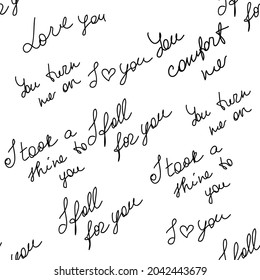 Love you
You turn
me on
I ♡ you
You
comfort
me
You turn
me on
I took a
shine to
you
I fall
for you
I took a
shine to
you
I fall
for you
I ♡ you
you
I fall
for
www.shutterstock.com · 2042443679